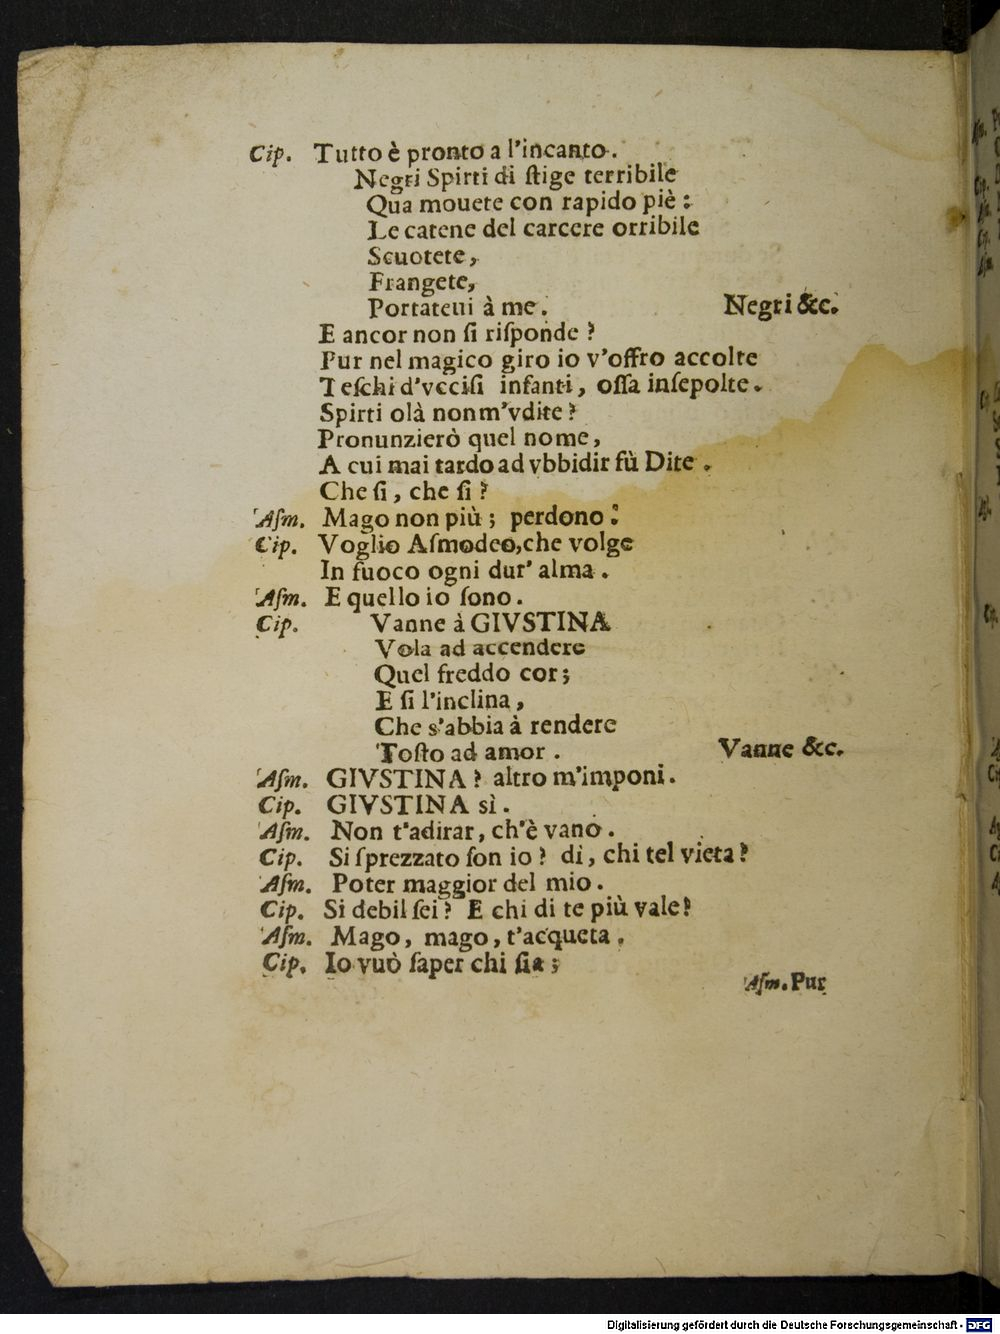 Cip. Tutto è pronto a l'incanto.
Negri Spirti di ſtige terribile
Qua mouete con rapido piè:
Le catene del carcere orribile
Scuotete,
Frangete,
Portateui à me. Negri &c.
E ancor non ſi riſponde?
Pur nel magico giro io v'offro accolte
Teſchi d'vcciſi infanti, oſſa inſepolte.
Spirti olà non m'vdite?
Pronunzierò quel nome,
A cui mai tardo ad vbbidir fù Dite.
Che ſi, che ſi?
Aſm. Mago non più; perdono:
Cip. Voglio Aſmodeo, che volge
In fuoco ogni dur' alma.
Aſm. E quello io ſono.
Cip. Vanne à GIVSTINA
Vola ad accendere
Quel freddo cor;
E ſi l'inclina,
Che s'abbia à rendere
Toſto ad amor. Vanne &c.
Aſm. GIVSTINA? altro m'imponi.
Cip. GIVSTINA sì.
Aſm. Non t'adirar, ch'è vano.
Cip. Si ſprezzato ſon io? di, chi tel vieta?
Aſm. Poter maggior del mio.
Cip. Si debil ſei? E chi di te più vale?
Aſm. Mago, mago, t'acqueta.
Cip. Io vuò ſaper chi ſia;
Aſm. Pur
Digitalisierung gefördert durch die Deutsche Forschungsgemeinschaft - DFG